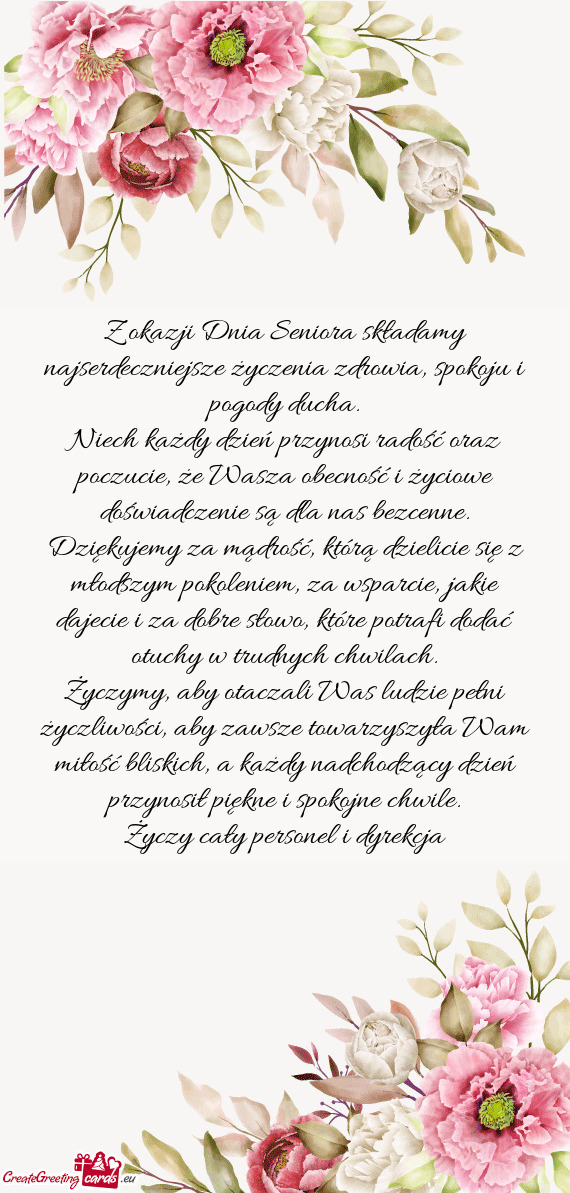 Z okazji Dnia Seniora składamy
najserdeczniejsze życzenia zdrowia, spokoju i
pogody ducha.
Niech każdy dzień przynosi radość oraz
poczucie, że Wasza obecność i życiowe
doświadczenie są dla nas bezcenne.
Dziękujemy za mądrość, którą dzielicie się z
młodszym pokoleniem, za wsparcie, jakie
dajecie i za dobre słowo, które potrafi dodać
otuchy w trudnych chwilach.
Życzymy, aby otaczali Was ludzie pełni
życzliwości, aby zawsze towarzyszyła Wam
miłość bliskich, a każdy nadchodzący dzień
przynosił piękne i spokojne chwile.
Życzy cały personel i dyrekcja
CreateGreeting cards .eu